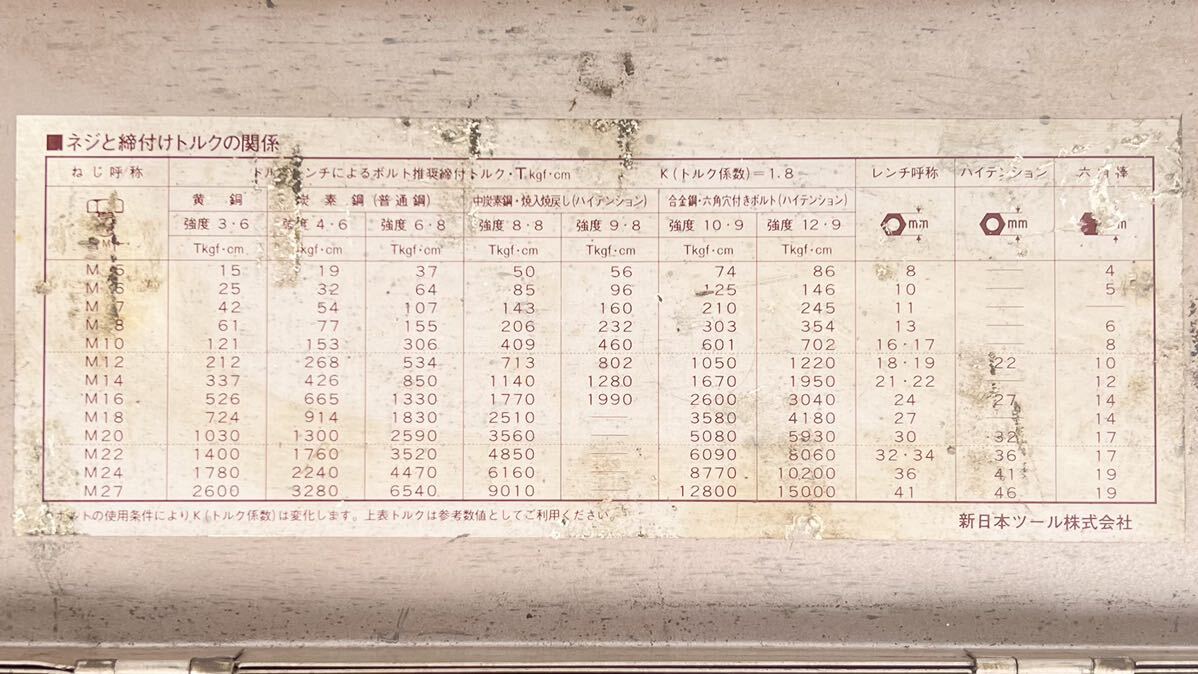 ■ネジと締付けトルクの関係
ねじ呼称 トルクレンチによるボルト推奨締付トルク・Tkgf・cm K(トルク係数)=1.8 レンチ呼称 ハイテンション 六角棒
黄銅 炭素鋼(普通鋼) 中炭素鋼・焼入焼戻し(ハイテンション) 合金鋼・六角穴付きボルト(ハイテンション)
強度3・6 強度4・6 強度6・8 強度8・8 強度9・8 強度10・9 強度12・9 mm mm
M Tkgf・cm Tkgf・cm Tkgf・cm Tkgf・cm Tkgf・cm Tkgf・cm Tkgf・cm
M 15 19 37 50 56 74 86 8 — 4
M 25 32 64 85 96 125 146 10 — 5
M 42 54 107 143 160 210 245 11 — —
M 8 61 77 155 206 232 303 354 13 — 6
M10 121 153 306 409 460 601 702 16・17 — 8
M12 212 268 534 713 802 1050 1220 18・19 22 10
M14 337 426 850 1140 1280 1670 1950 21・22 — 12
M16 526 665 1330 1770 1990 2600 3040 24 27 14
M18 724 914 1830 2510 — 3580 4180 27 — 14
M20 1030 1300 2590 3560 — 5080 5930 30 32 17
M22 1400 1760 3520 4850 — 6090 8060 32・34 36 17
M24 1780 2240 4470 6160 — 8770 10200 36 41 19
M27 2600 3280 6540 9010 — 12800 15000 41 46 19
ボルトの使用条件によりK(トルク係数)は変化します。上表トルクは参考数値としてご利用ください。
新日本ツール株式会社